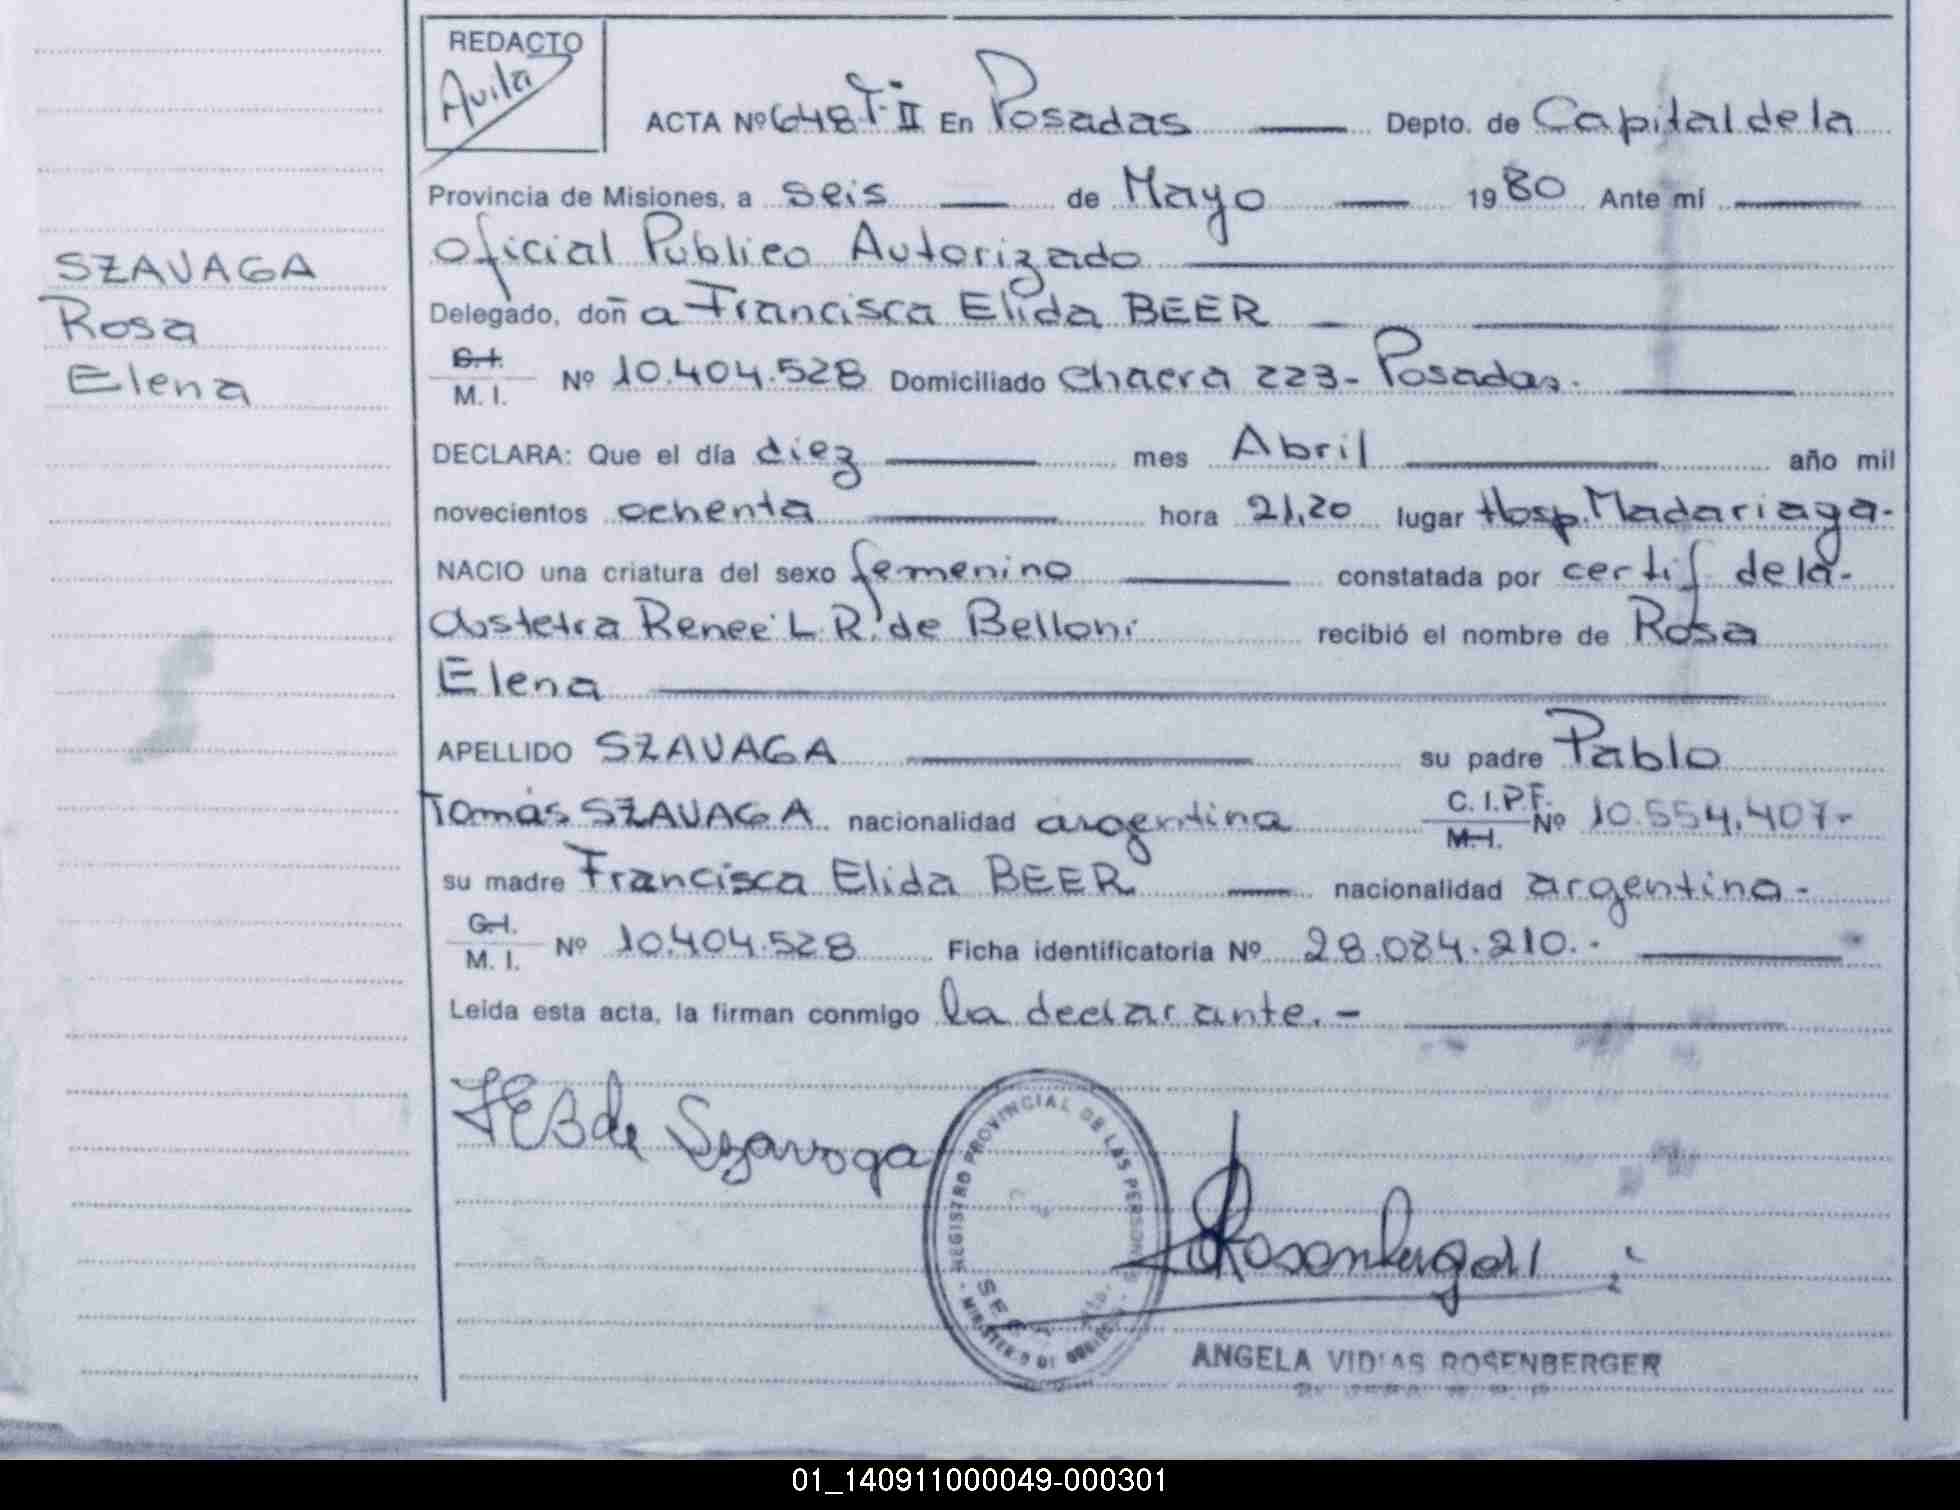 REDACTO
Avila
ACTA Nº 648 T. II En Posadas Depto. de Capital de la
Provincia de Misiones, a seis de Mayo 1980 Ante mí
Oficial Público Autorizado
SZAVAGA
Rosa
Elena
Delegado, doña Francisca Elida BEER
C.I.
M. I. Nº 10.404.528 Domiciliado Chacra 223- Posadas.
DECLARA: Que el día diez mes Abril año mil
novecientos ochenta hora 21,20 lugar Hosp. Madariaga-
NACIO una criatura del sexo femenino constatada por certif de la-
obstetra Renee L. R. de Belloni recibió el nombre de Rosa
Elena
APELLIDO SZAVAGA su padre Pablo
Tomás SZAVAGA nacionalidad argentina C.I.P.F. Nº 10.554.407-
M.I.
su madre Francisca Elida BEER nacionalidad argentina-
C.I.
M. I. Nº 10.404.528 Ficha identificatoria Nº 28.084.210.-
Leída esta acta, la firman conmigo la declarante.-
FEB de Szavaga
REGISTRO PROVINCIAL DE LAS PERSONAS
MINISTERIO DE GOBIERNO
Rosenberger
ANGELA VIDIAS ROSENBERGER
01_140911000049-000301